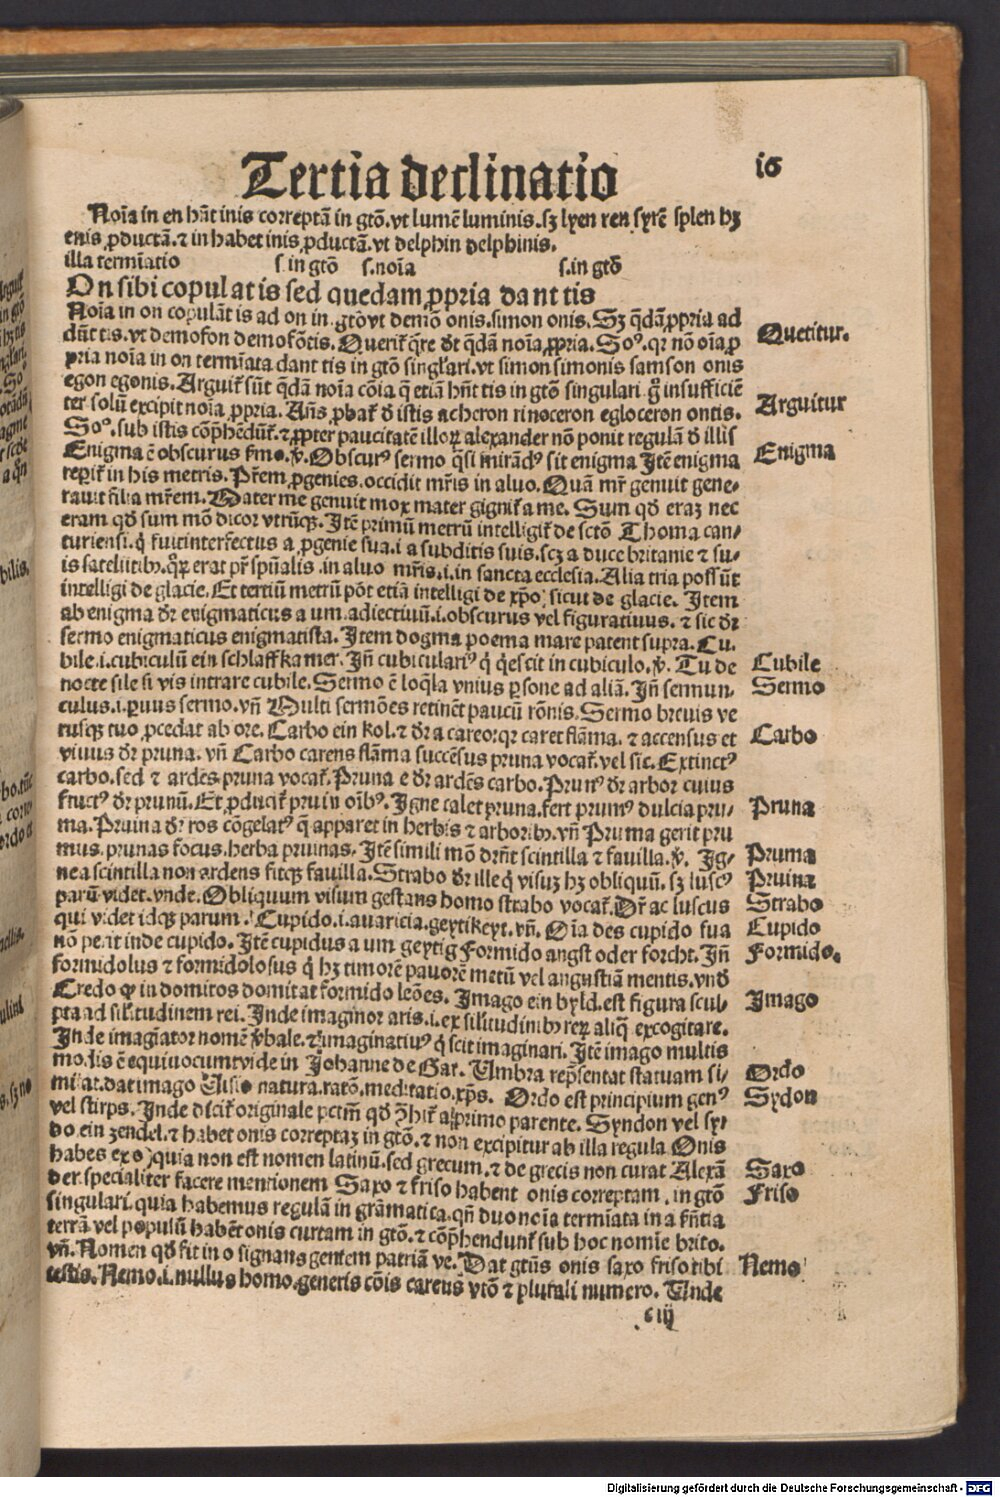 Tertia declinatio
16
Noīa in en hn̄t inis correptā in gtō. vt lumē luminis. sz lyen ren syrē splen hz
enis ꝓductā. ⁊ in habet inis ꝓductā. vt delphin delphinis.
illa termīatio s. in gtō s. noīa s. in gtō
On sibi copulat is sed quedam ꝓpria dant tis
Noīa in on copulāt is ad on in gtō vt demō onis. simon onis. Sz q̄dā ꝓpria ad
dūt tis. vt demofon demofōtis. Querit̄ q̄re dr̄ q̄dā noīa ꝓpria. Soꝰ. qr nō oīa ꝓ
pria noīa in on termīata dant tis in gtō singl̄ari. vt simon simonis samson onis
egon egonis. Arguit̄ sūt q̄dā noīa cōia q̄ etiā hn̄t tis in gtō singulari g̊ insufficiē
ter solū excipit noīa ꝓpria. An̄s ꝓbat̄ d̄ istis acheron rinoceron egloceron ontis.
Soꝰ. sub istis cōp̄hēdūt̄. ⁊ ꝓpter paucitatē illoꝝ alexander nō ponit regulā d̄ illis
Enigma ē obscurus ẜmo. v̄. Obscurꝰ sermo q̄si mirādꝰ sit enigma Itē enigma
reꝑit̄ in his metris. Pr̄em ꝓgenies occidit mr̄is in aluo. Quā mr̄ genuit gene-
rauit filia mr̄em. Mater me genuit mox mater gignit̄ a me. Sum qd̄ eraz nec
eram qd̄ sum mō dicor vtrūqꝫ. Itē primū metrū intelligit̄ de sctō Thoma can-
turiensi. q̇ fuit interfectus a ꝓgenie sua. i. a subditis suis. scz a duce britanie ⁊ su-
is satelitibꝫ. q̄rꝫ erat pr̄ spūalis. in aluo mr̄is. i. in sancta ecclesia. Alia tria possūt
intelligi de glacie. Et tertiū metrū pōt etiā intelligi de xp̄o. sicut de glacie. Item
ab enigma dr̄ enigmaticus a um. adiectiuū. i. obscurus vel figuratiuus. ⁊ sic dr̄
sermo enigmaticus enigmatista. Item dogma poema mare patent supra. Cu-
bile. i. cubiculū ein schlaffkamer. In̄ cubiculariꝰ q̇ q̄escit in cubiculo. v̄. Tu de
nocte sile si vis intrare cubile. Sermo ē loq̄la vnius ꝑsone ad aliā. In̄ sermun-
culus. i. ꝑuus sermo. vn̄ Multi sermōes retinēt paucū rōnis. Sermo breuis ve
rusqꝫ tuo ꝓcedat ab ore. Carbo ein kol. ⁊ dr̄ a careo. qr caret flāma. ⁊ accensus et
viuus dr̄ pruna. vn̄ Carbo carens flāma succēsus pruna vocat̄. vel sic. Extinctꝰ
carbo. sed ⁊ ardēs pruna vocat̄. Pruna e dr̄ ardēs carbo. Prunꝰ dr̄ arbor cuius
fructꝰ dr̄ prunū. Et ꝓducit̄ pru in oībꝰ. Igne calet pruna. fert prunꝰ dulcia pru-
ma. Pruina dr̄ ros cōgelatꝰ q̄ apparet in herbis ⁊ arboribꝫ. vn̄ Pruma gerit pru
mus. prunas focus. herba pruinas. Itē simili mō drn̄t scintilla ⁊ fauilla. v̄. Ig-
nea scintilla non ardens fitqꝫ fauilla. Strabo dr̄ ille q̇ visuz hz obliquū. sz luscꝰ
parū videt. vnde. Obliquum visum gestans homo strabo vocat̄. Dr̄ ac luscus
qui videt idqꝫ parum. Cupido. i. auaricia. geytikeyt. vn̄. Oīa des cupido sua
nō perit inde cupido. Itē cupidus a um. geytig Formido angst oder forcht. In̄
formidolus ⁊ formidolosus q̇ hz timorē pauorē metū vel angustiā mentis. vnd̄
Credo ꝙ indomitos domitat formido leōes. Imago ein byld. est figura scul-
pta ad silitudinem rei. Inde imaginor aris. i. ex silitudinibꝫ reꝝ aliq̄ excogitare.
Inde imagīator nomē v̄bale. ⁊ imaginatiuꝰ q̇ scit imaginari. Itē imago multis
modis ē equiuocum vt vide in Johanne de Gar. Umbra rep̄sentat statuam si-
milat. dat imago Uisio natura. ratō. meditatio. xp̄s. Ordo est principium genꝰ
vel stirps. Inde dicit̄ originale pctm̄ qd̄ ꝯ̄hit̄ a primo parente. Syndon vel sy-
do ein zendel. ⁊ habet onis correptaz in gtō. ⁊ non excipitur ab illa regula Onis
habes ex o) quia non est nomen latinū. sed grecum. ⁊ de grecis non curat Alexā
der. specialiter facere mentionem Saxo ⁊ friso habent onis correptam. in gtō
singulari. quia habemus regulā in grāmatica. qn̄ duo noīa termīata in a sn̄tia
terrā vel populū habēt onis curtam in gtō. ⁊ cōp̄hendunt̄ sub hoc nomīe brito.
vn̄. Nomen qd̄ fit in o signans gentem patriā ve. Dat gtūs onis saxo friso tibi
testis. Nemo. i. nullus homo. generis cōis carens vtō ⁊ plurali numero. Unde
c iij
Quetitur.
Arguitur
Enigma
Cubile
Sermo
Carbo
Pruna
Pruma
Pruina
Strabo
Cupido
Formido.
Imago
Ordo
Sydon
Saxo
Friso
Nemo
Digitalisierung gefördert durch die Deutsche Forschungsgemeinschaft - DFG